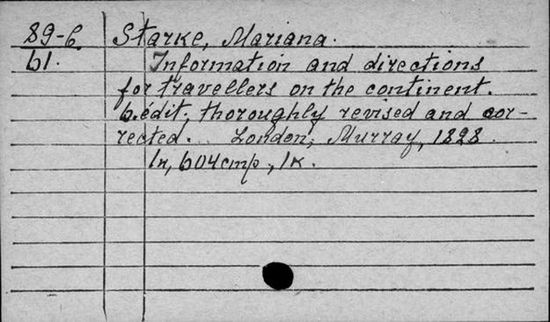 89-6 Starke, Mariana.
61. Information and directions
for travellers on the continent.
6. édit. thoroughly revised and cor-
rected. London, Murray, 1828
1н, 604 стр, 1к.